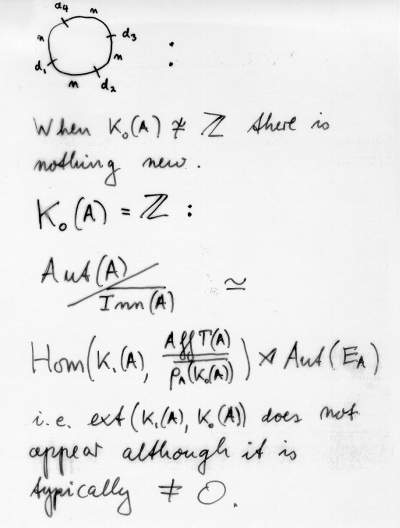 d₄ n
n d₃
d₁ n
n d₂
:
When K₀(A) ≄ ℤ there is
nothing new.
K₀(A) = ℤ :
Aut(A) / Inn(A) ≃
Hom(K₁(A), Aff T(A) / ρ_A(K₀(A))) ⋊ Aut(E_A)
i.e. ext(K₁(A), K₀(A)) does not
appear although it is
typically ≠ 0.